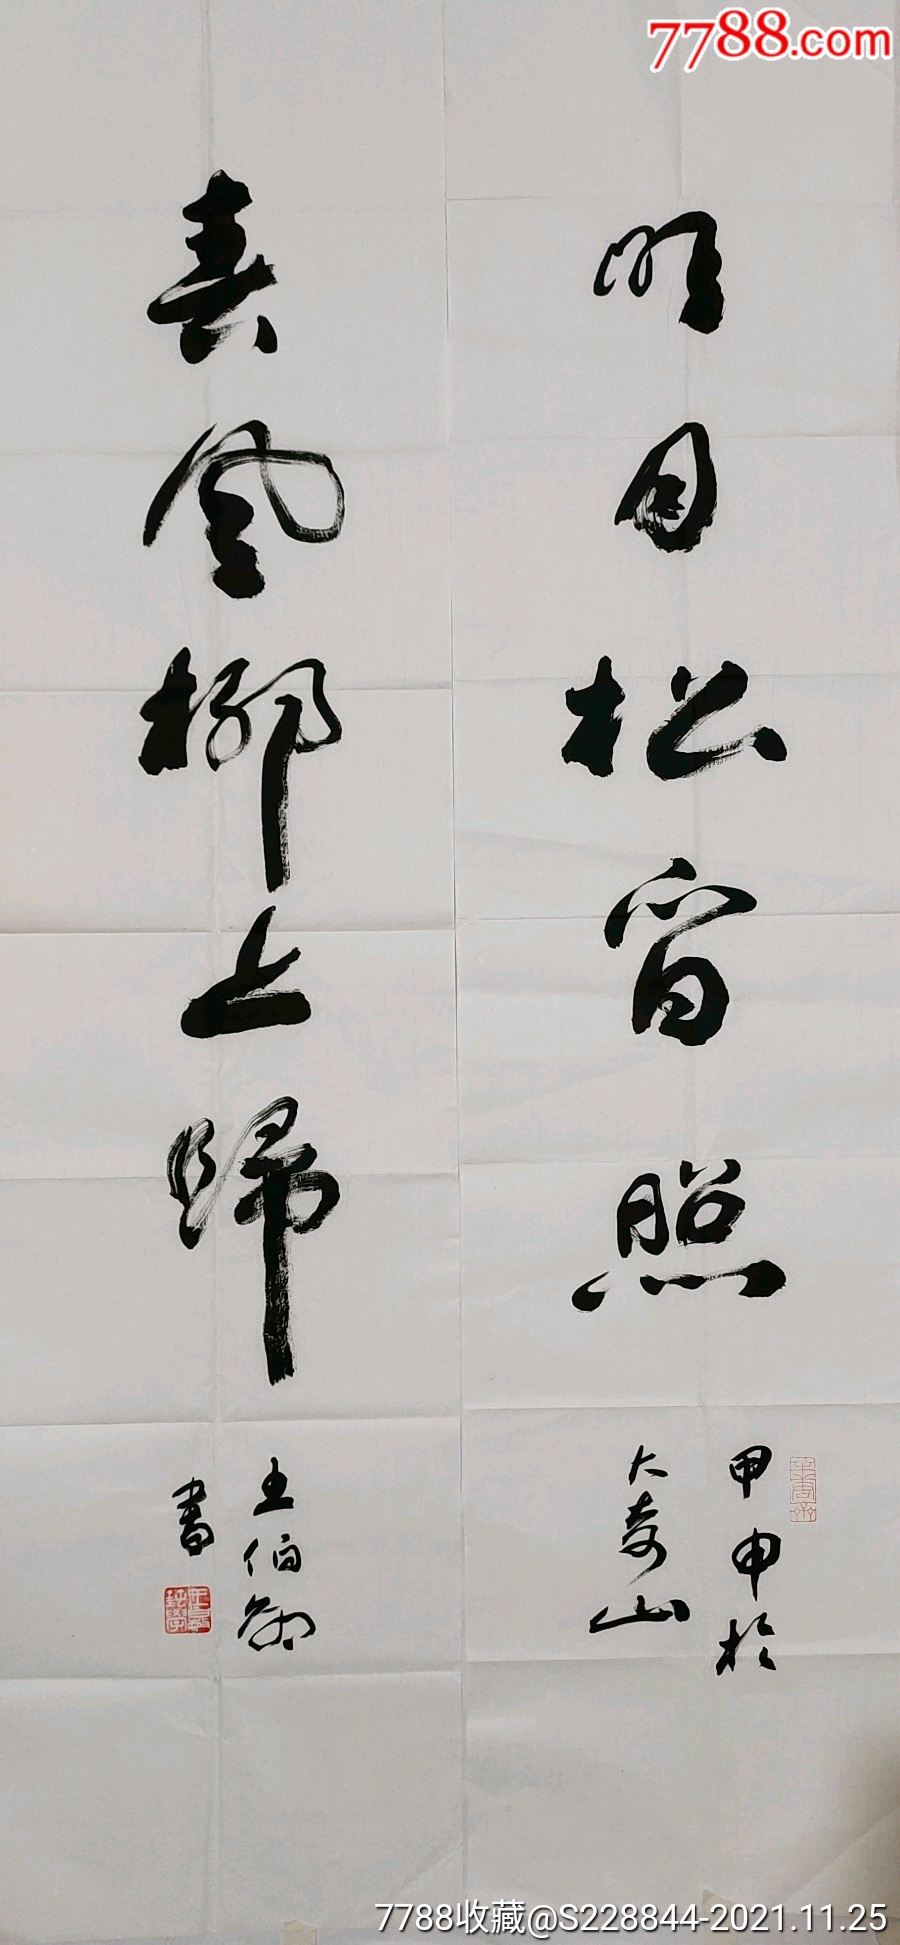 7788.com
明月松间照
甲申於
大奇山
春风柳上归
王伯
書
7788收藏@S228844-2021.11.25